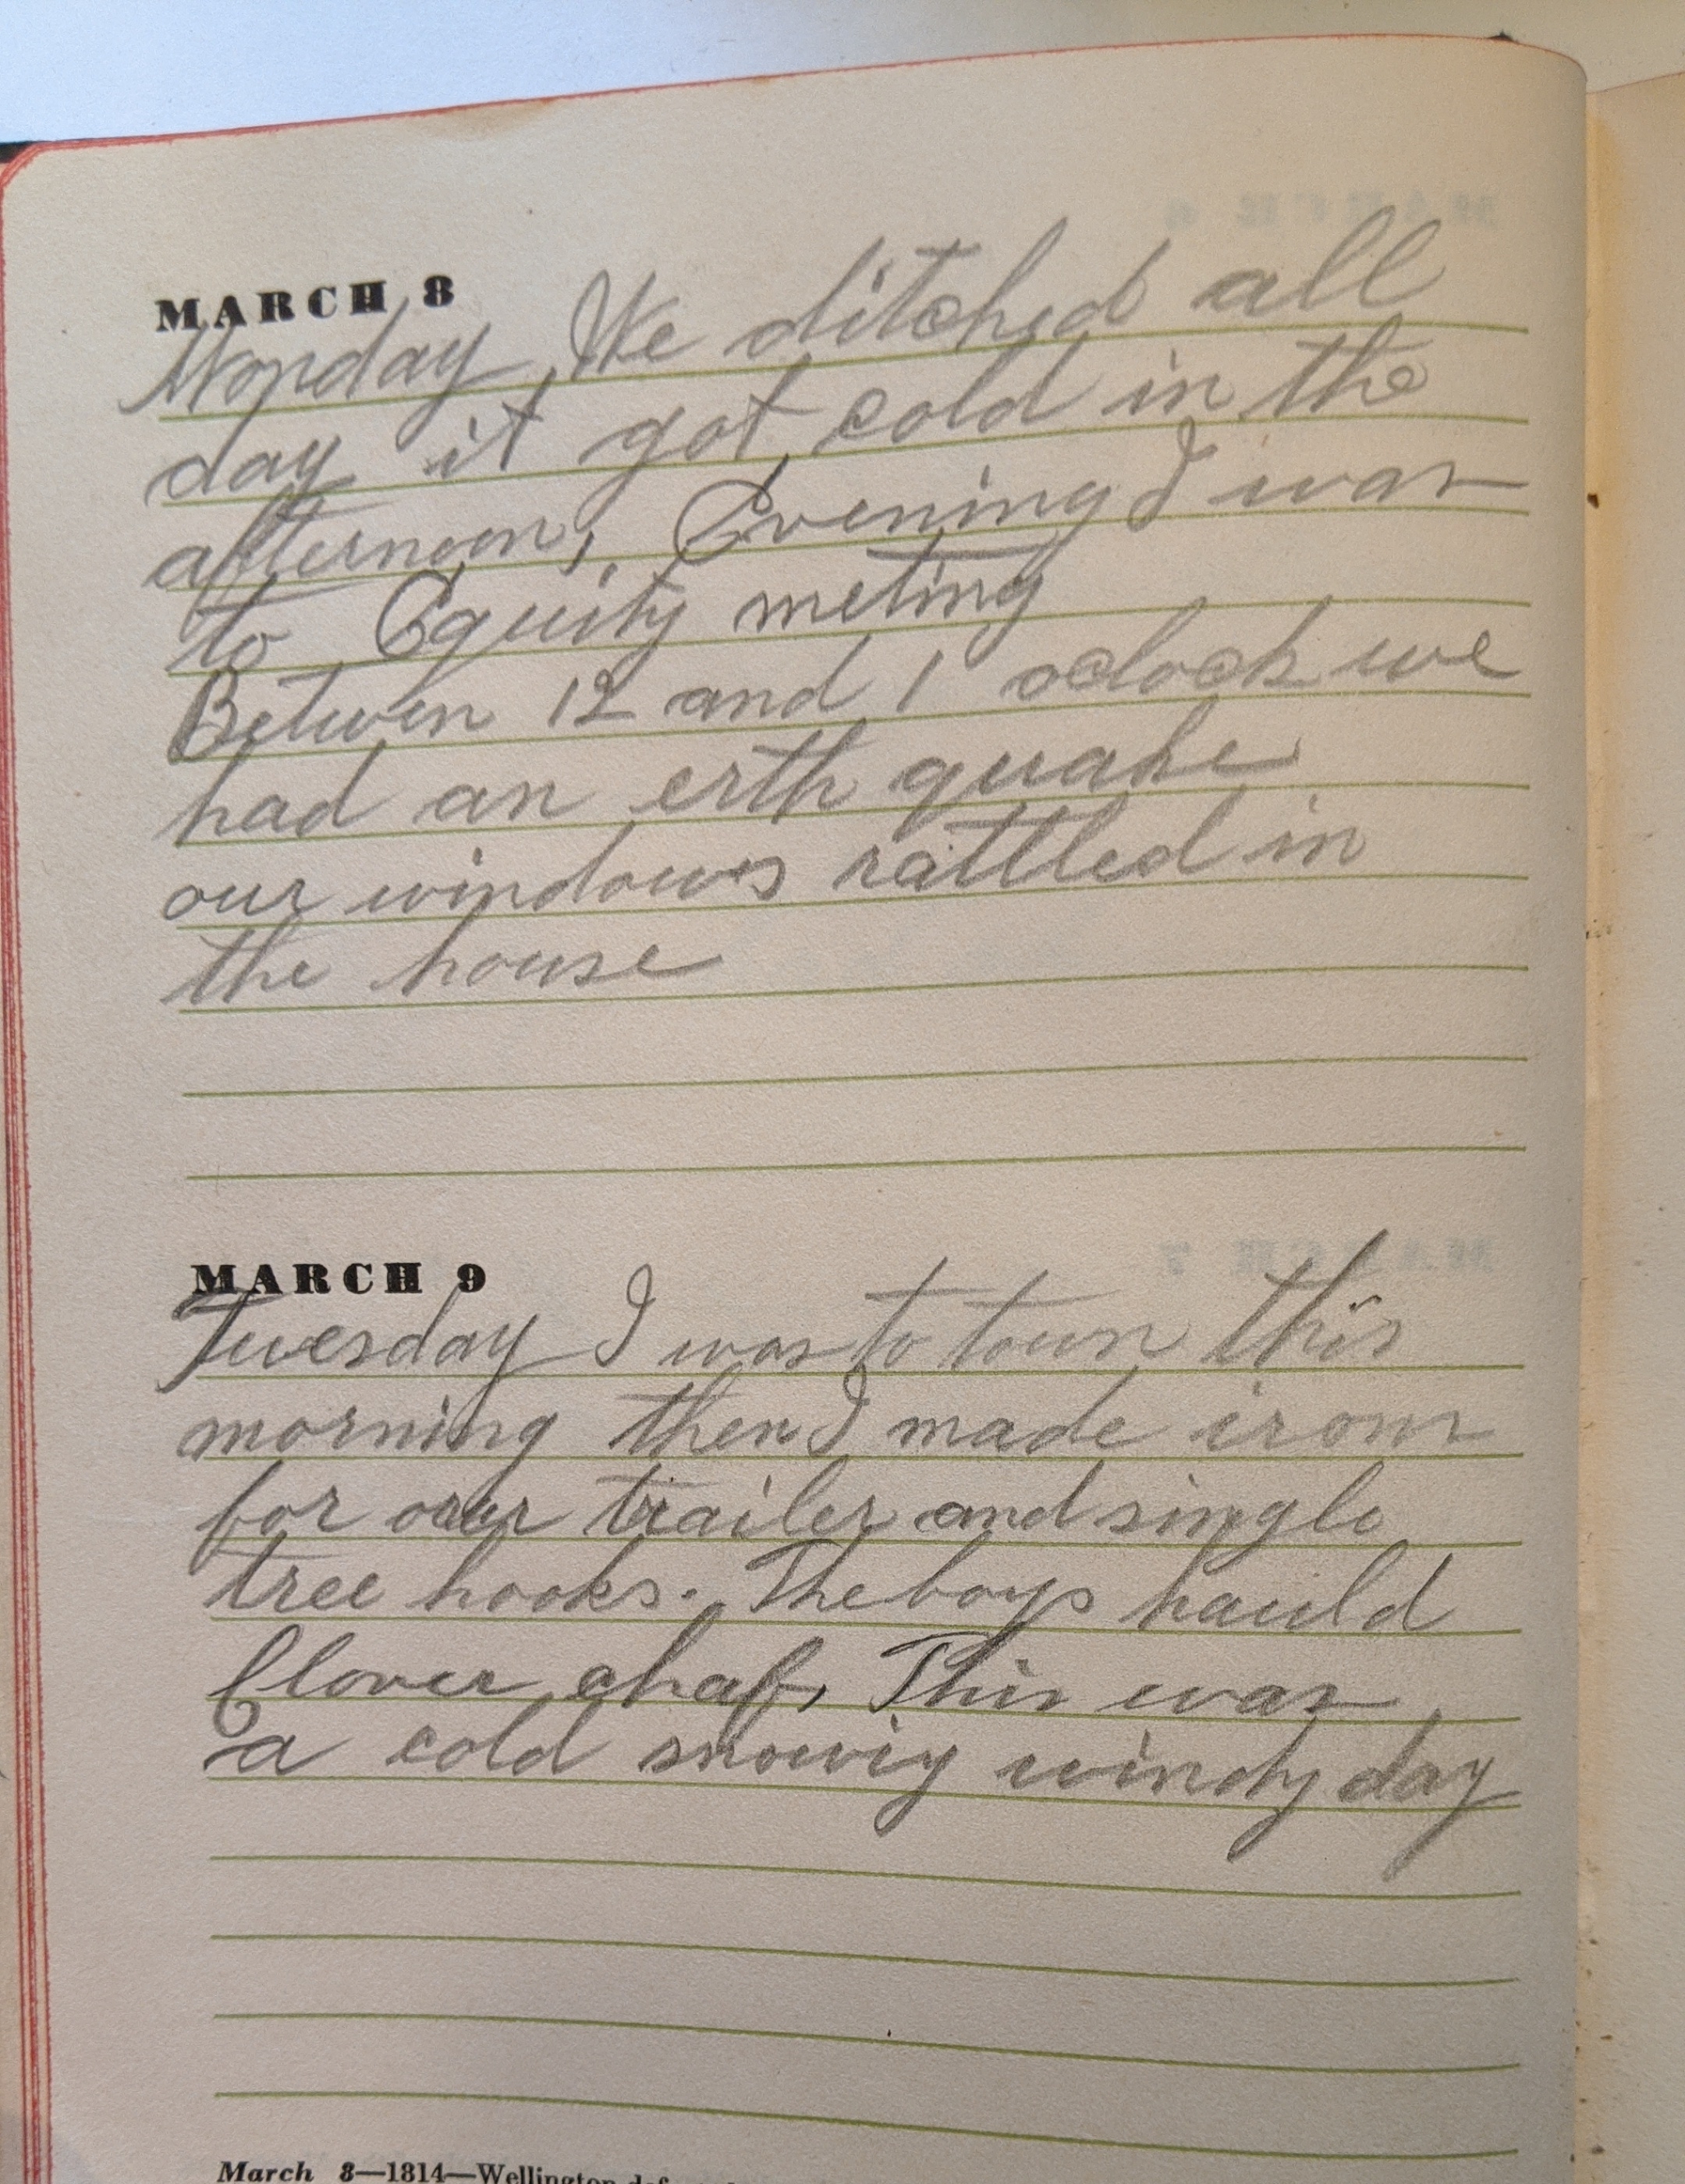 MARCH 8
Monday, We ditched all
day it got cold in the
afternoon, Evening I was
to Equity meting
Betwen 12 and 1 oclock we
had an erth quake
our windows rattled in
the house
MARCH 9
Tuesday I was to town this
morning then I made irons
for our trailer and single
tree hooks. The boys hauld
Clover chaf, This was
a cold snowiy windy day
March 8—1814—Wellington